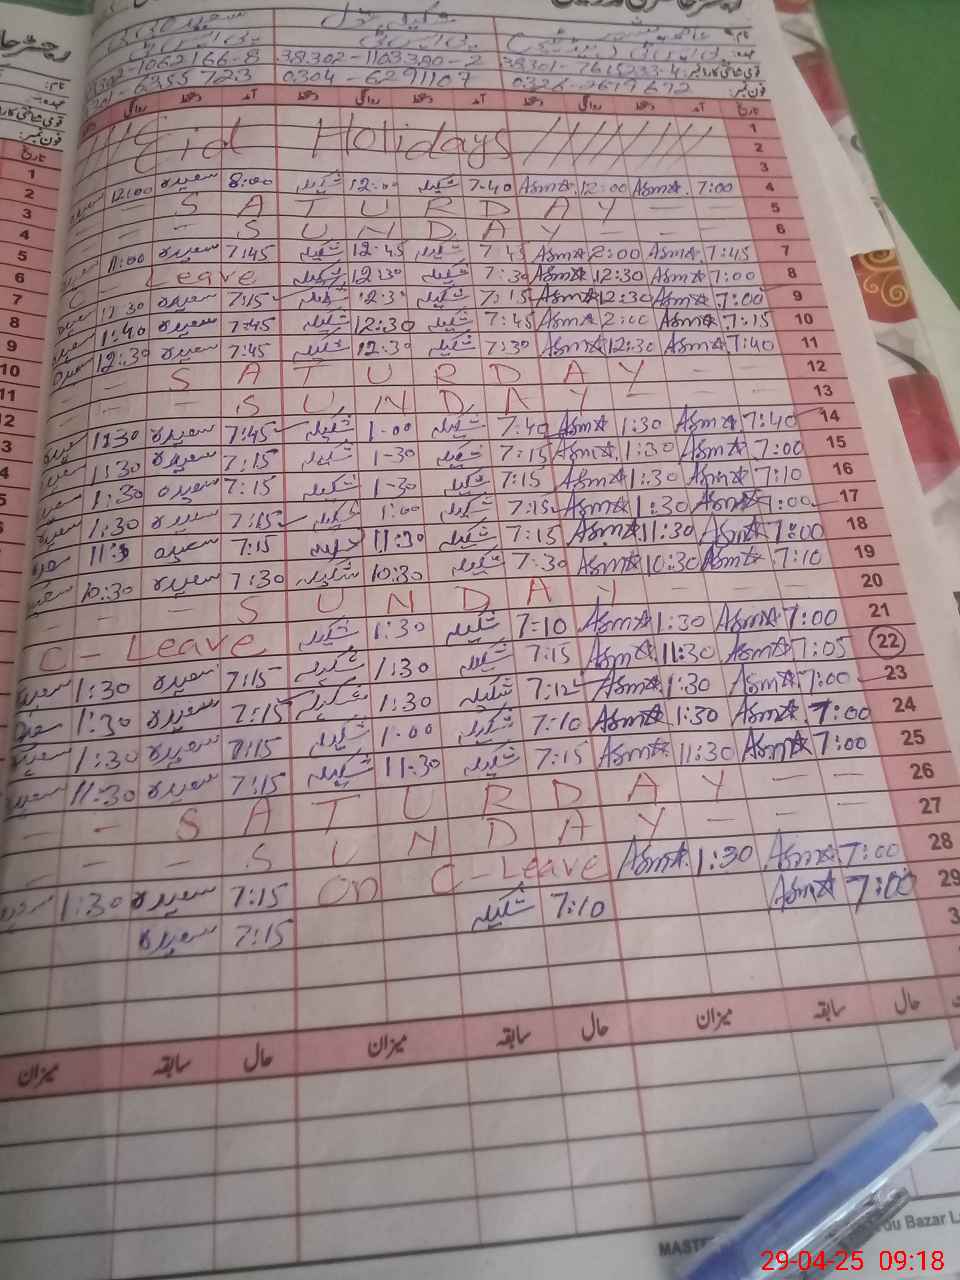 38302-1062166-8 38302-1103390-2 38301-7615233-4 قومی شناختی کارڈ نمبر
6355723 0304-6291107 0326-2617672 فون نمبر:
روانگی دستخط آمد دستخط روانگی دستخط آمد دستخط روانگی دستخط آمد تاریخ
Eid Holidays 1
2
3
12:00 سعیدہ 8:00 شکیلہ 12:00 شکیلہ 7-40 Asma 12:00 Asma 7:00 4
S A T U R D A Y 5
S U N D A Y 6
11:00 سعیدہ 7:45 شکیلہ 12:45 شکیلہ 7:45 Asma 2:00 Asma 7:45 7
C- Leave شکیلہ 12:30 شکیلہ 7:30 Asma 12:30 Asma 7:00 8
سعیدہ 7:15 شکیلہ 12:3 شکیلہ 7:15 Asma 12:30 Asma 7:00 9
1:40 سعیدہ 7:45 شکیلہ 12:30 شکیلہ 7:45 Asma 2:00 Asma 7:15 10
12:30 سعیدہ 7:45 شکیلہ 12:30 شکیلہ 7:30 Asma 12:30 Asma 7:40 11
S A T U R D A Y 12
S U N D A Y 13
سعیدہ 7:45 شکیلہ 1-00 شکیلہ 7:40 Asma 1:30 Asma 7:40 14
1:30 سعیدہ 7:15 شکیلہ 1-30 شکیلہ 7:15 Asma 1:30 Asma 7:00 15
1:30 سعیدہ 7:15 شکیلہ 1-30 شکیلہ 7:15 Asma 1:30 Asma 7:10 16
1:30 سعیدہ 7:15 شکیلہ 1:00 شکیلہ 7:15 Asma 1:30 Asma 7:00 17
سعیدہ 7:15 شکیلہ 11:30 شکیلہ 7:15 Asma 11:30 Asma 7:00 18
10:30 سعیدہ 7:30 شکیلہ 10:30 شکیلہ 7:30 Asma 10:30 Asma 7:10 19
S U N D A Y 20
C- Leave شکیلہ 1:30 شکیلہ 7:10 Asma 1:30 Asma 7:00 21
1:30 سعیدہ 7:15 شکیلہ 1:30 شکیلہ 7:15 Asma 11:30 Asma 7:05 22
1:30 سعیدہ 7:15 شکیلہ 1:30 شکیلہ 7:12 Asma 1:30 Asma 7:00 23
1:30 سعیدہ 7:15 شکیلہ 1-00 شکیلہ 7:10 Asma 1:30 Asma 7:00 24
11:30 سعیدہ 7:15 شکیلہ 11-30 شکیلہ 7:15 Asma 11:30 Asma 7:00 25
S A T U R D A Y 26
S U N D A Y 27
1:30 سعیدہ 7:15 On C-Leave Asma 1:30 Asma 7:00 28
سعیدہ 7:15 شکیلہ 7:10 Asma 7:00 29
میزان سابقہ حال میزان سابقہ حال میزان سابقہ حال
نام:
عہدہ:
فون نمبر:
تاریخ
1
2
3
4
5
6
7
8
9
10
11
du Bazar L
MASTE
29-04-25 09:18